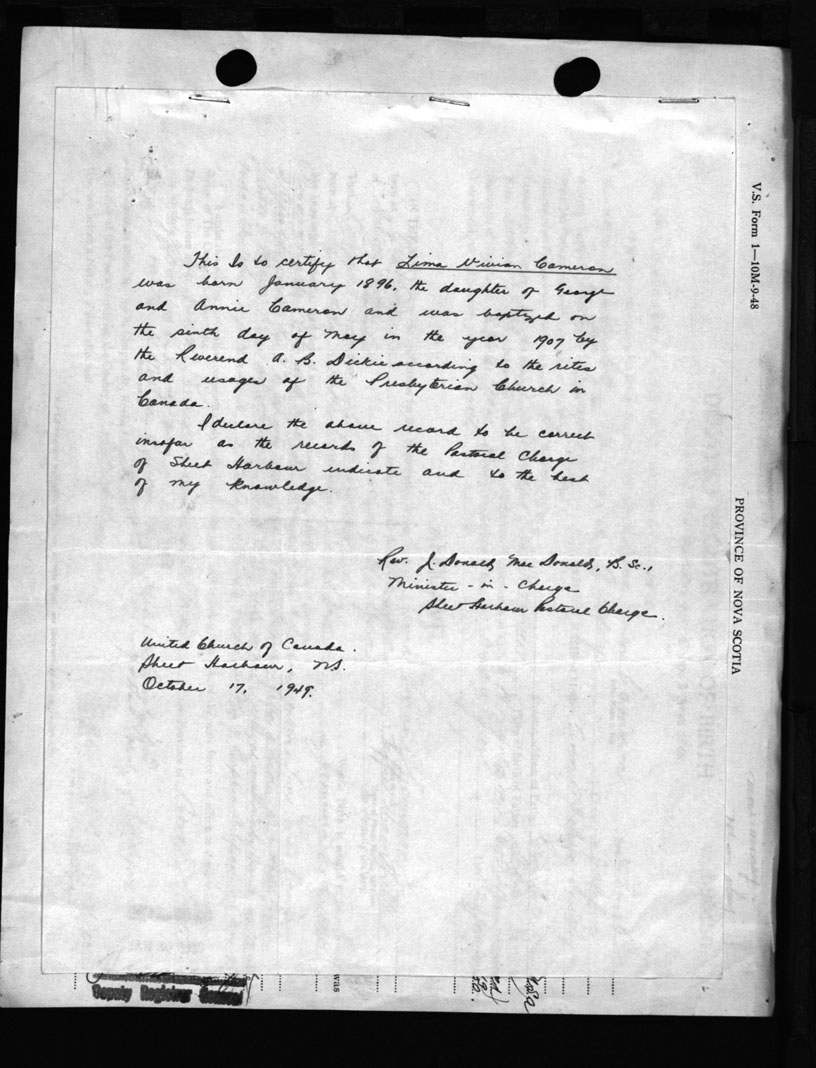 This Is to certify that Lima Vivian Cameron
was born January 1896, the daughter of George
and Annie Cameron and was baptyzd on
the sinth day of May in the year 1907 by
the Reverend A. B. Dickie according to the rites
and usages of the Presbyterian Church in
Canada.
I declare the above record to be correct
insofar as the records of the Pastoral Charge
of Sheet Harbour indicate and to the best
of my knowledge.
Rev. J. Donald MacDonald, B. Sc.,
Minister - in - Charge
Sheet Harbour Pastoral Charge.
United Church of Canada.
Sheet Harbour, N.S.
October 17, 1949.
V.S. Form 1—10M-9-48
PROVINCE OF NOVA SCOTIA
Deputy Registrar General
was